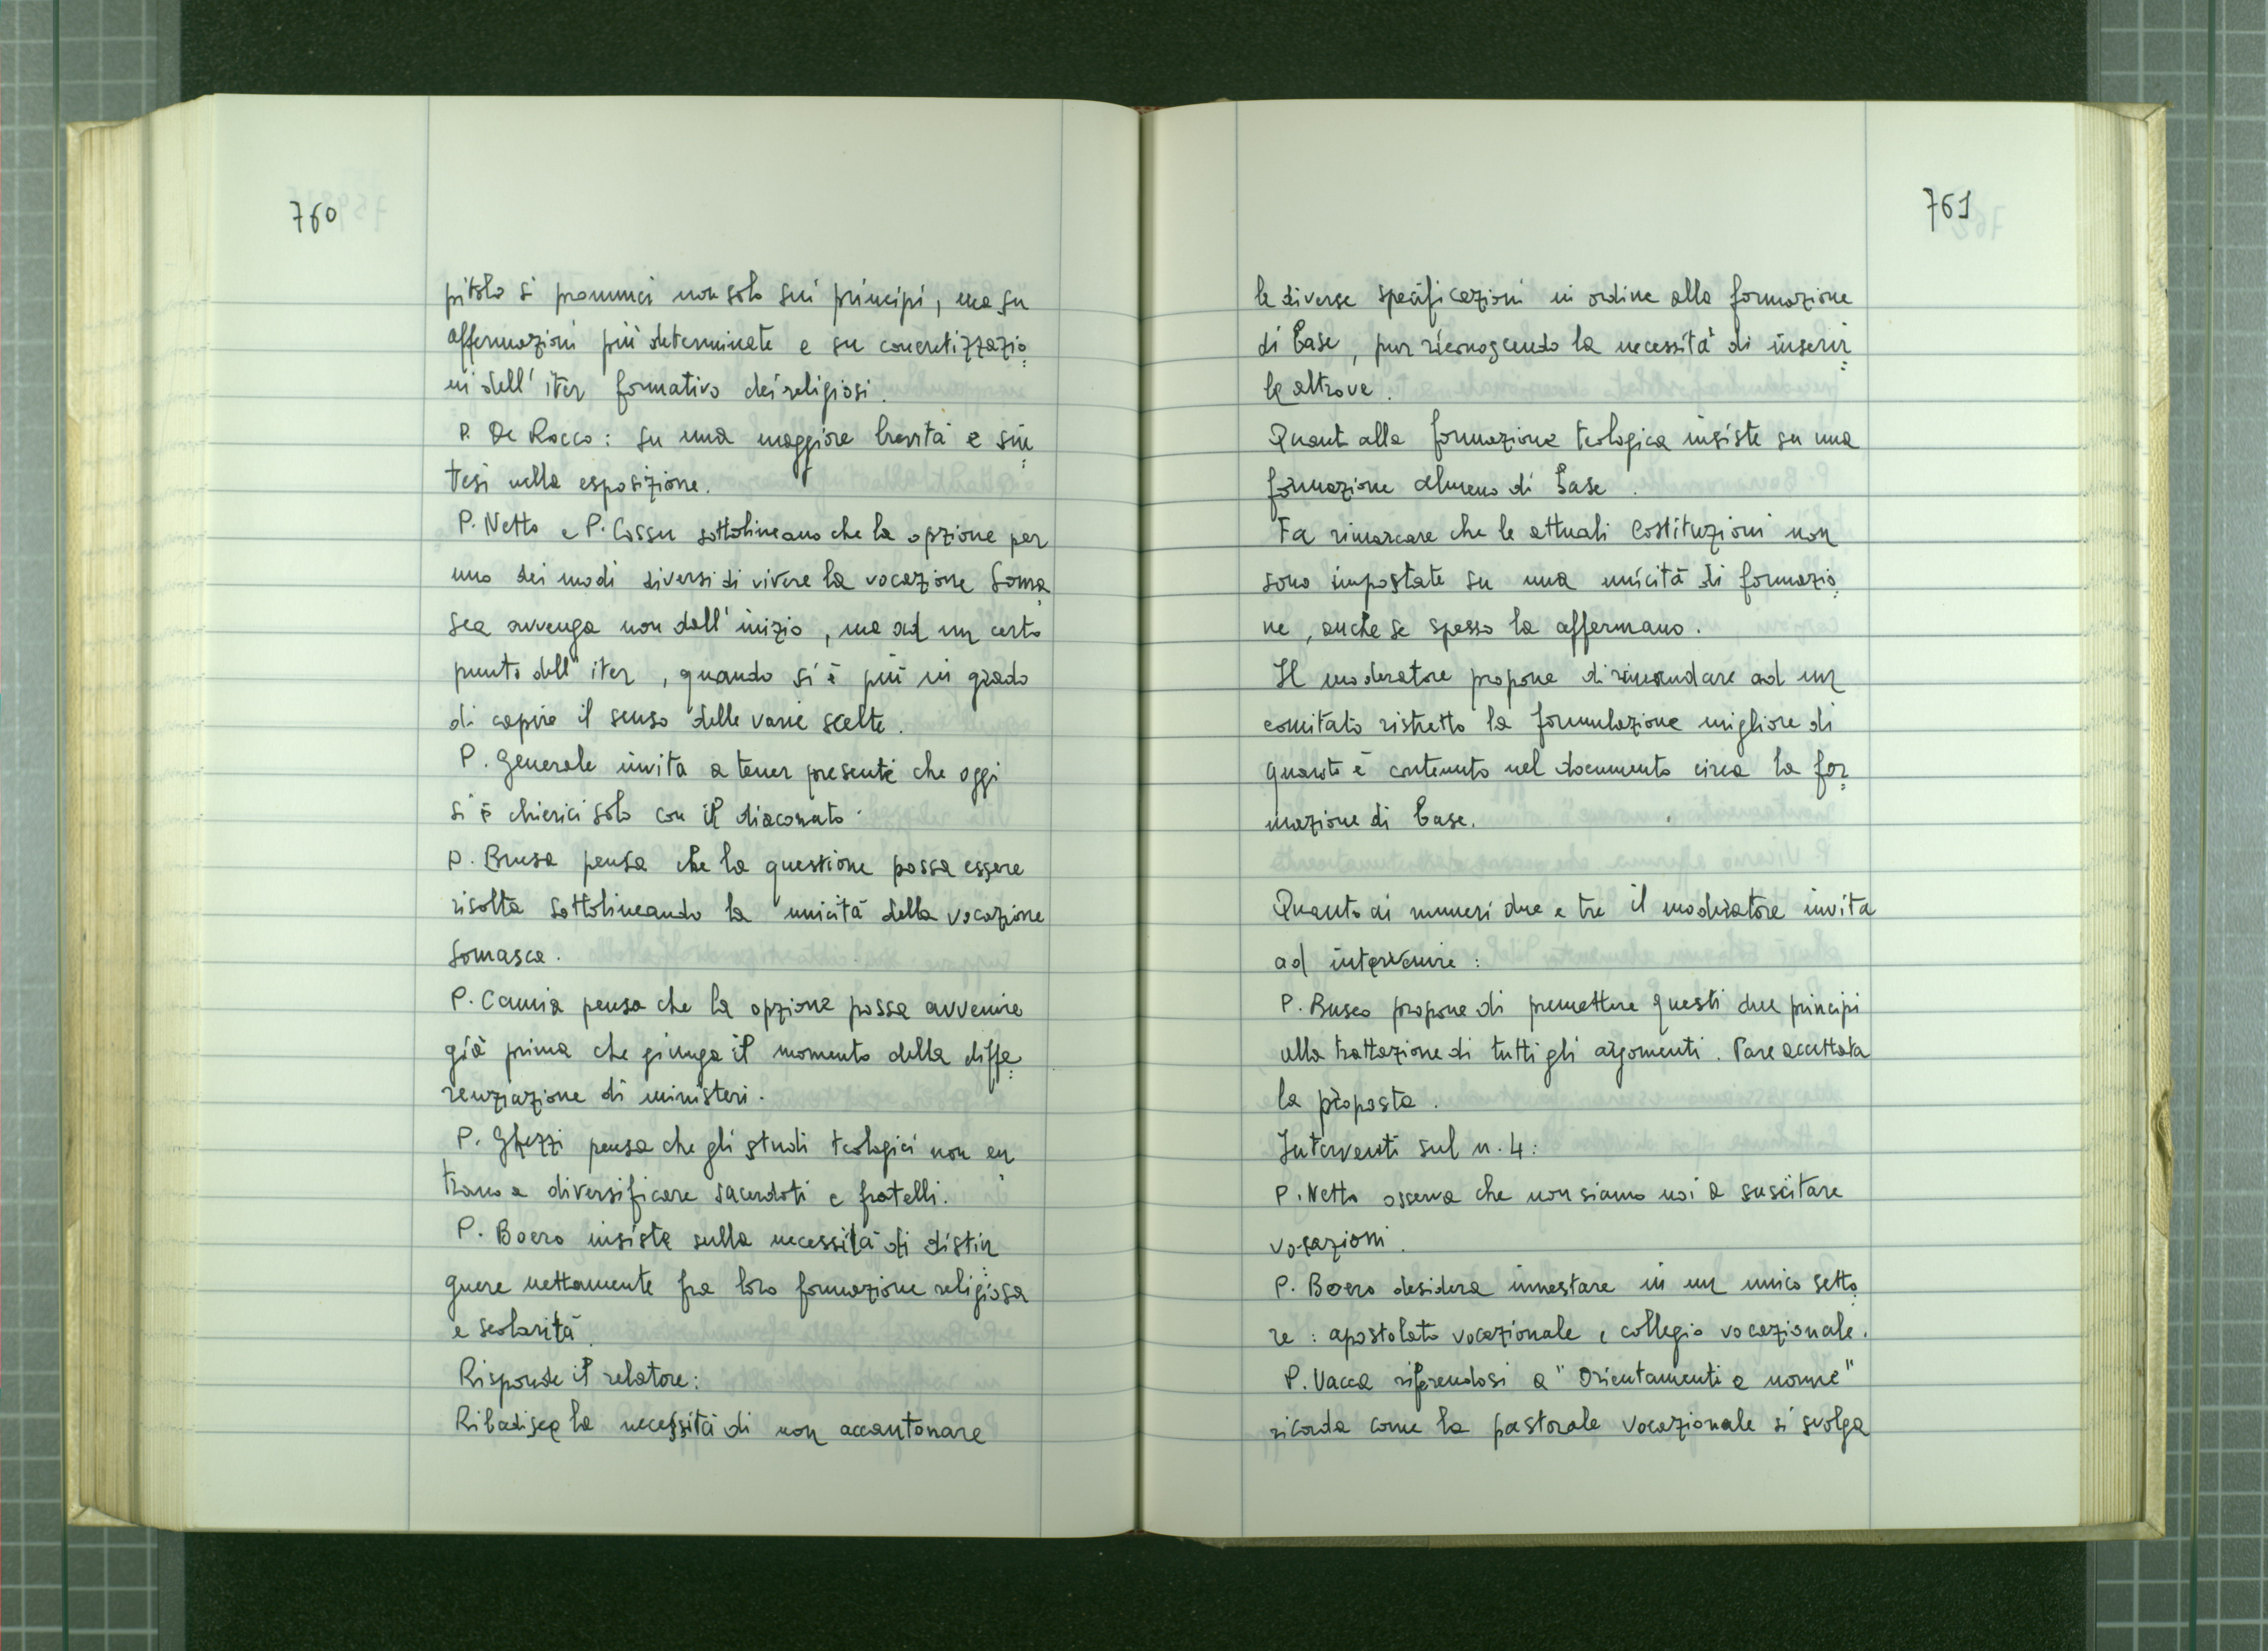 760
pitolo si pronunci non solo sui principi, ma su
affermazioni più determinate e su concretizzazio=
ni dell'iter formativo dei religiosi.
P. De Rocco: su una maggiore brevità e sin=
tesi nella esposizione.
P. Netto e P. Cossu sottolineano che la opzione per
uno dei modi diversi di vivere la vocazione Soma=
sca avvenga non dall'inizio, ma ad un certo
punto dell'iter, quando si è più in grado
di capire il senso delle varie scelte.
P. Generale invita a tener presente che oggi
si è chierici solo con il diaconato.
P. Brusa pensa che la questione possa essere
risolta sottolineando la unicità della vocazione
Somasca.
P. Camia pensa che la opzione possa avvenire
già prima che giunga il momento della diffe=
renziazione di ministeri.
P. Ghezzi pensa che gli studi teologici non en=
trano a diversificare sacerdoti e fratelli.
P. Boero insiste sulla necessità di distin=
guere nettamente fra loro formazione religiosa
e scolarità.
Risponde il relatore:
Ribadisce la necessità di non accantonare
761
le diverse specificazioni in ordine alla formazione
di base, pur riconoscendo la necessità di inserir=
le altrove.
Quanto alla formazione teologica insiste su una
formazione almeno di base.
Fa rimarcare che le attuali Costituzioni non
sono impostate su una unicità di formazio=
ne, anche se spesso la affermano.
Il moderatore propone di rimandare ad un
comitato ristretto la formulazione migliore di
quanto è contenuto nel documento circa la for=
mazione di base.
Quanto ai numeri due e tre il moderatore invita
ad intervenire:
P. Busco propone di premettere questi due principi
alla trattazione di tutti gli argomenti. Pare accettata
la proposta.
Interventi sul n. 4:
P. Netto osserva che non siamo noi a suscitare
vocazioni.
P. Boero desidera innestare in un unico setto=
re: apostolato vocazionale e collegio vocazionale.
P. Vacca riferendosi a "Orientamenti e norme"
ricorda come la pastorale vocazionale si svolga